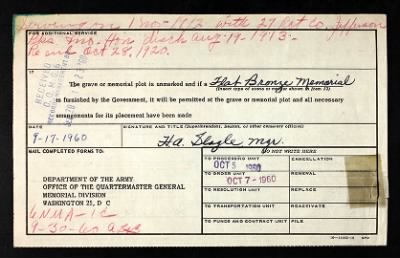 Serving on 1 Nov-1912 with 27 Rct Co. Jefferson
FOR ADDITIONAL SERVICE
Bks. Mo. Hon disch Aug-19-1913-
Re enl Oct 28, 1920.
RECEIVED
The grave or memorial plot is unmarked and if a Flat Bronze Memorial
(Insert type of stone or marker shown in Item 12)
is furnished by the Government, it will be permitted at the grave or memorial plot and all necessary
arrangements for its placement have been made
DATE
SIGNATURE AND TITLE (Superintendent, Sexton, or other cemetery official)
9-17-1960
Mgr.
MAIL COMPLETED FORMS TO:
DO NOT WRITE HERE
TO PROCESSING UNIT
CANCELLATION
OCT 5 1960
DEPARTMENT OF THE ARMY
OFFICE OF THE QUARTERMASTER GENERAL
MEMORIAL DIVISION
WASHINGTON 25, D C
TO ORDER UNIT
REINSTATE
OCT 7-1960
TO RESOLUTION UNIT
REPLACE
TO TRANSPORTATION UNIT
REACTIVATE
TO FUNDS AND CONTRACT UNIT
6NMA-1C
9-30-60